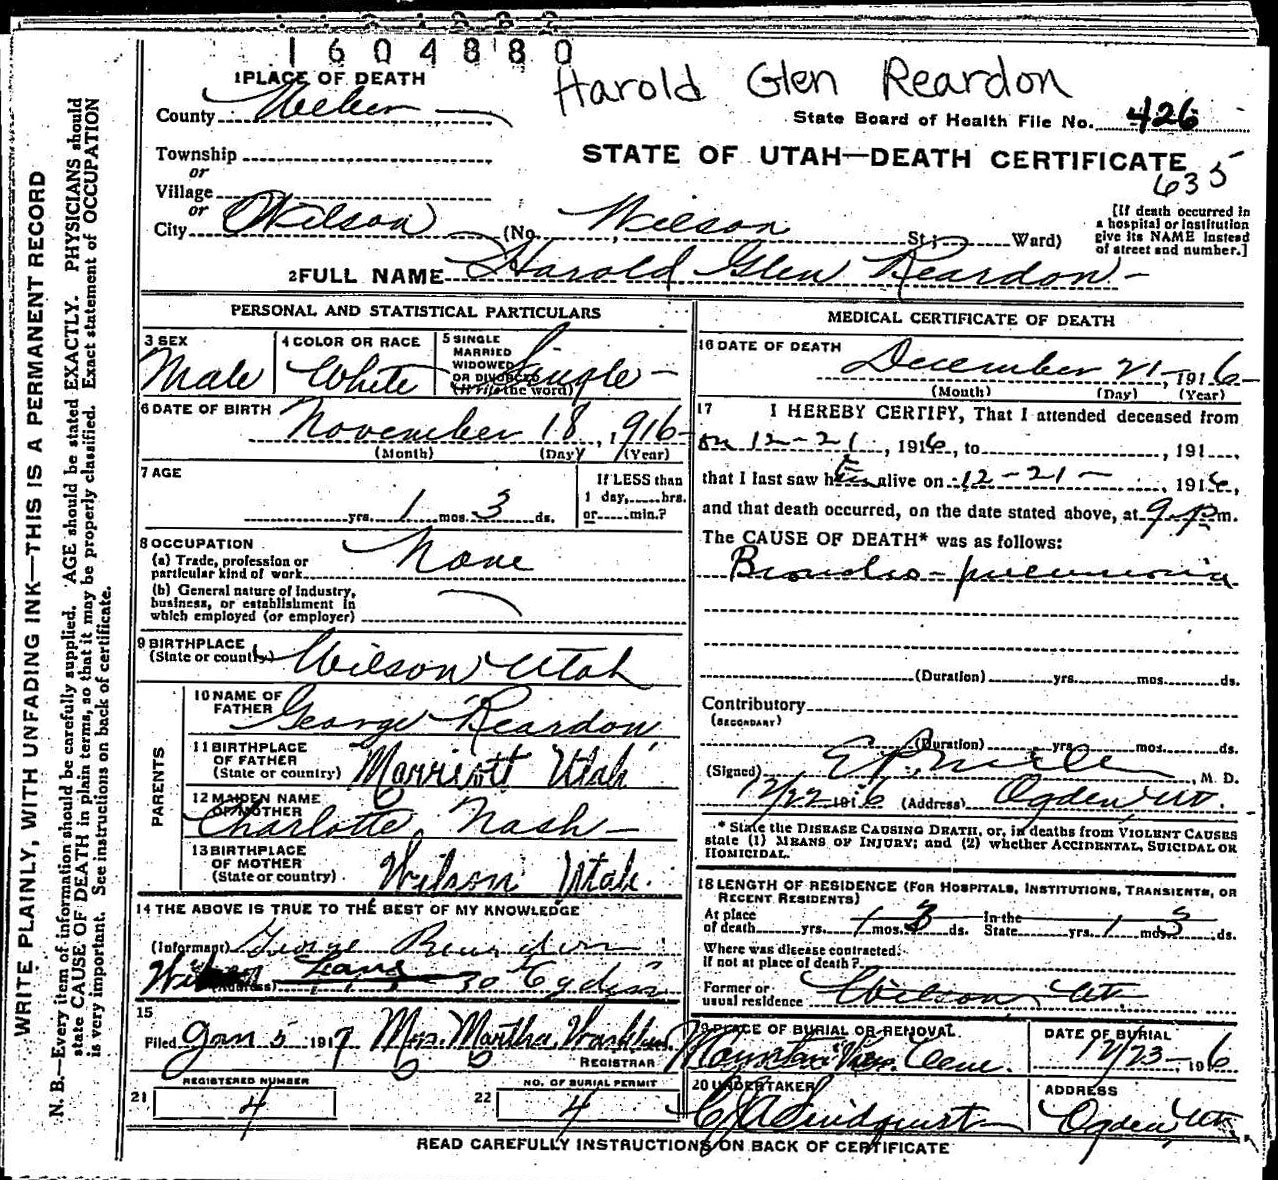 1604880
Harold Glen Reardon
1 PLACE OF DEATH
County Weber
State Board of Health File No. 426
Township
or
Village
or
City Wilson
STATE OF UTAH—DEATH CERTIFICATE
635
(No. Wilson St.; Ward)
[If death occurred in
a hospital or institution
give its NAME instead
of street and number.]
2 FULL NAME Harold Glen Reardon
PERSONAL AND STATISTICAL PARTICULARS
3 SEX
Male
4 COLOR OR RACE
White
5 SINGLE
MARRIED
WIDOWED
OR DIVORCED
(Write the word)
Single
6 DATE OF BIRTH
November 18, 1916
(Month) (Day) (Year)
7 AGE
yrs. 1 mos. 3 ds.
If LESS than
1 day, hrs.
or min.?
8 OCCUPATION
(a) Trade, profession or
particular kind of work
None
(b) General nature of industry,
business, or establishment in
which employed (or employer)
9 BIRTHPLACE
(State or country)
Wilson Utah
PARENTS
10 NAME OF
FATHER
George Reardon
11 BIRTHPLACE
OF FATHER
(State or country)
Marriott Utah
12 MAIDEN NAME
OF MOTHER
Charlotte Nash
13 BIRTHPLACE
OF MOTHER
(State or country)
Wilson Utah.
14 THE ABOVE IS TRUE TO THE BEST OF MY KNOWLEDGE
(Informant) George Reardon
(Address) Lane
15
Filed Jan 5 1917 Mrs. Martha
REGISTRAR
21
REGISTERED NUMBER
4
22
NO. OF BURIAL PERMIT
4
MEDICAL CERTIFICATE OF DEATH
16 DATE OF DEATH
December 21, 1916
(Month) (Day) (Year)
17 I HEREBY CERTIFY, That I attended deceased from
on 12-21, 1916, to , 191 ,
that I last saw him alive on 12-21-, 1916,
and that death occurred, on the date stated above, at 9 p m.
The CAUSE OF DEATH* was as follows:
Broncho-pneumonia
(Duration) yrs. mos. ds.
Contributory
(SECONDARY)
(Duration) yrs. mos. ds.
(Signed) , M. D.
12/22 1916 (Address) Ogden Ut.
* State the DISEASE CAUSING DEATH, or, in deaths from VIOLENT CAUSES
state (1) MEANS OF INJURY; and (2) whether ACCIDENTAL, SUICIDAL OR
HOMICIDAL.
18 LENGTH OF RESIDENCE (FOR HOSPITALS, INSTITUTIONS, TRANSIENTS, OR
RECENT RESIDENTS)
At place
of death yrs. 1 mos. 3 ds.
In the
State yrs. 1 mos. 3 ds.
Where was disease contracted,
if not at place of death?
Former or
usual residence Wilson Ut.
19 PLACE OF BURIAL OR REMOVAL
Mountain View Cem.
DATE OF BURIAL
12/23-, 1916
20 UNDERTAKER
Lindquist
ADDRESS
Ogden, Ut.
READ CAREFULLY INSTRUCTIONS ON BACK OF CERTIFICATE
WRITE PLAINLY, WITH UNFADING INK—THIS IS A PERMANENT RECORD
N. B.—Every item of information should be carefully supplied. AGE should be stated EXACTLY. PHYSICIANS should
state CAUSE OF DEATH in plain terms, so that it may be properly classified. Exact statement of OCCUPATION
is very important. See instructions on back of certificate.